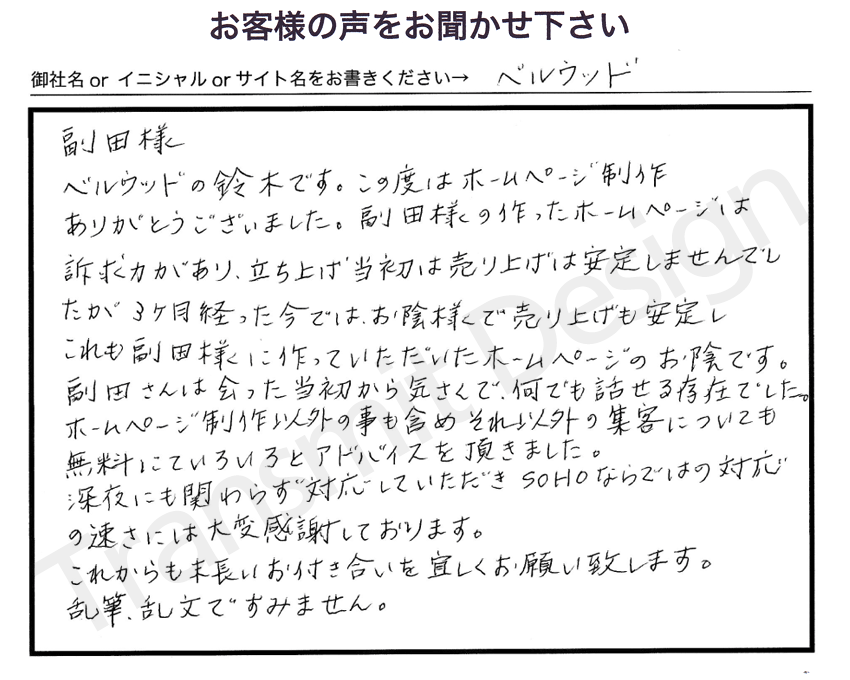 お客様の声をお聞かせ下さい
御社名 or イニシャル or サイト名をお書きください→ ベルウッド
副田様
ベルウッドの鈴木です。この度はホームページ制作
ありがとうございました。副田様の作ったホームページは
訴求力があり、立ち上げ当初は売り上げは安定しませんでし
たが 3ヶ月経った今では、お陰様で売り上げも安定し
これも副田様に作っていただいたホームページのお陰です。
副田さんは会った当初から気さくで、何でも話せる存在でした。
ホームページ制作以外の事も含めそれ以外の集客についても
無料にていろいろとアドバイスを頂きました。
深夜にも関わらず対応していただき SOHOならではの対応
の速さには大変感謝しております。
これからも末長いお付き合いを宜しくお願い致します。
乱筆、乱文ですみません。
Transmit Design